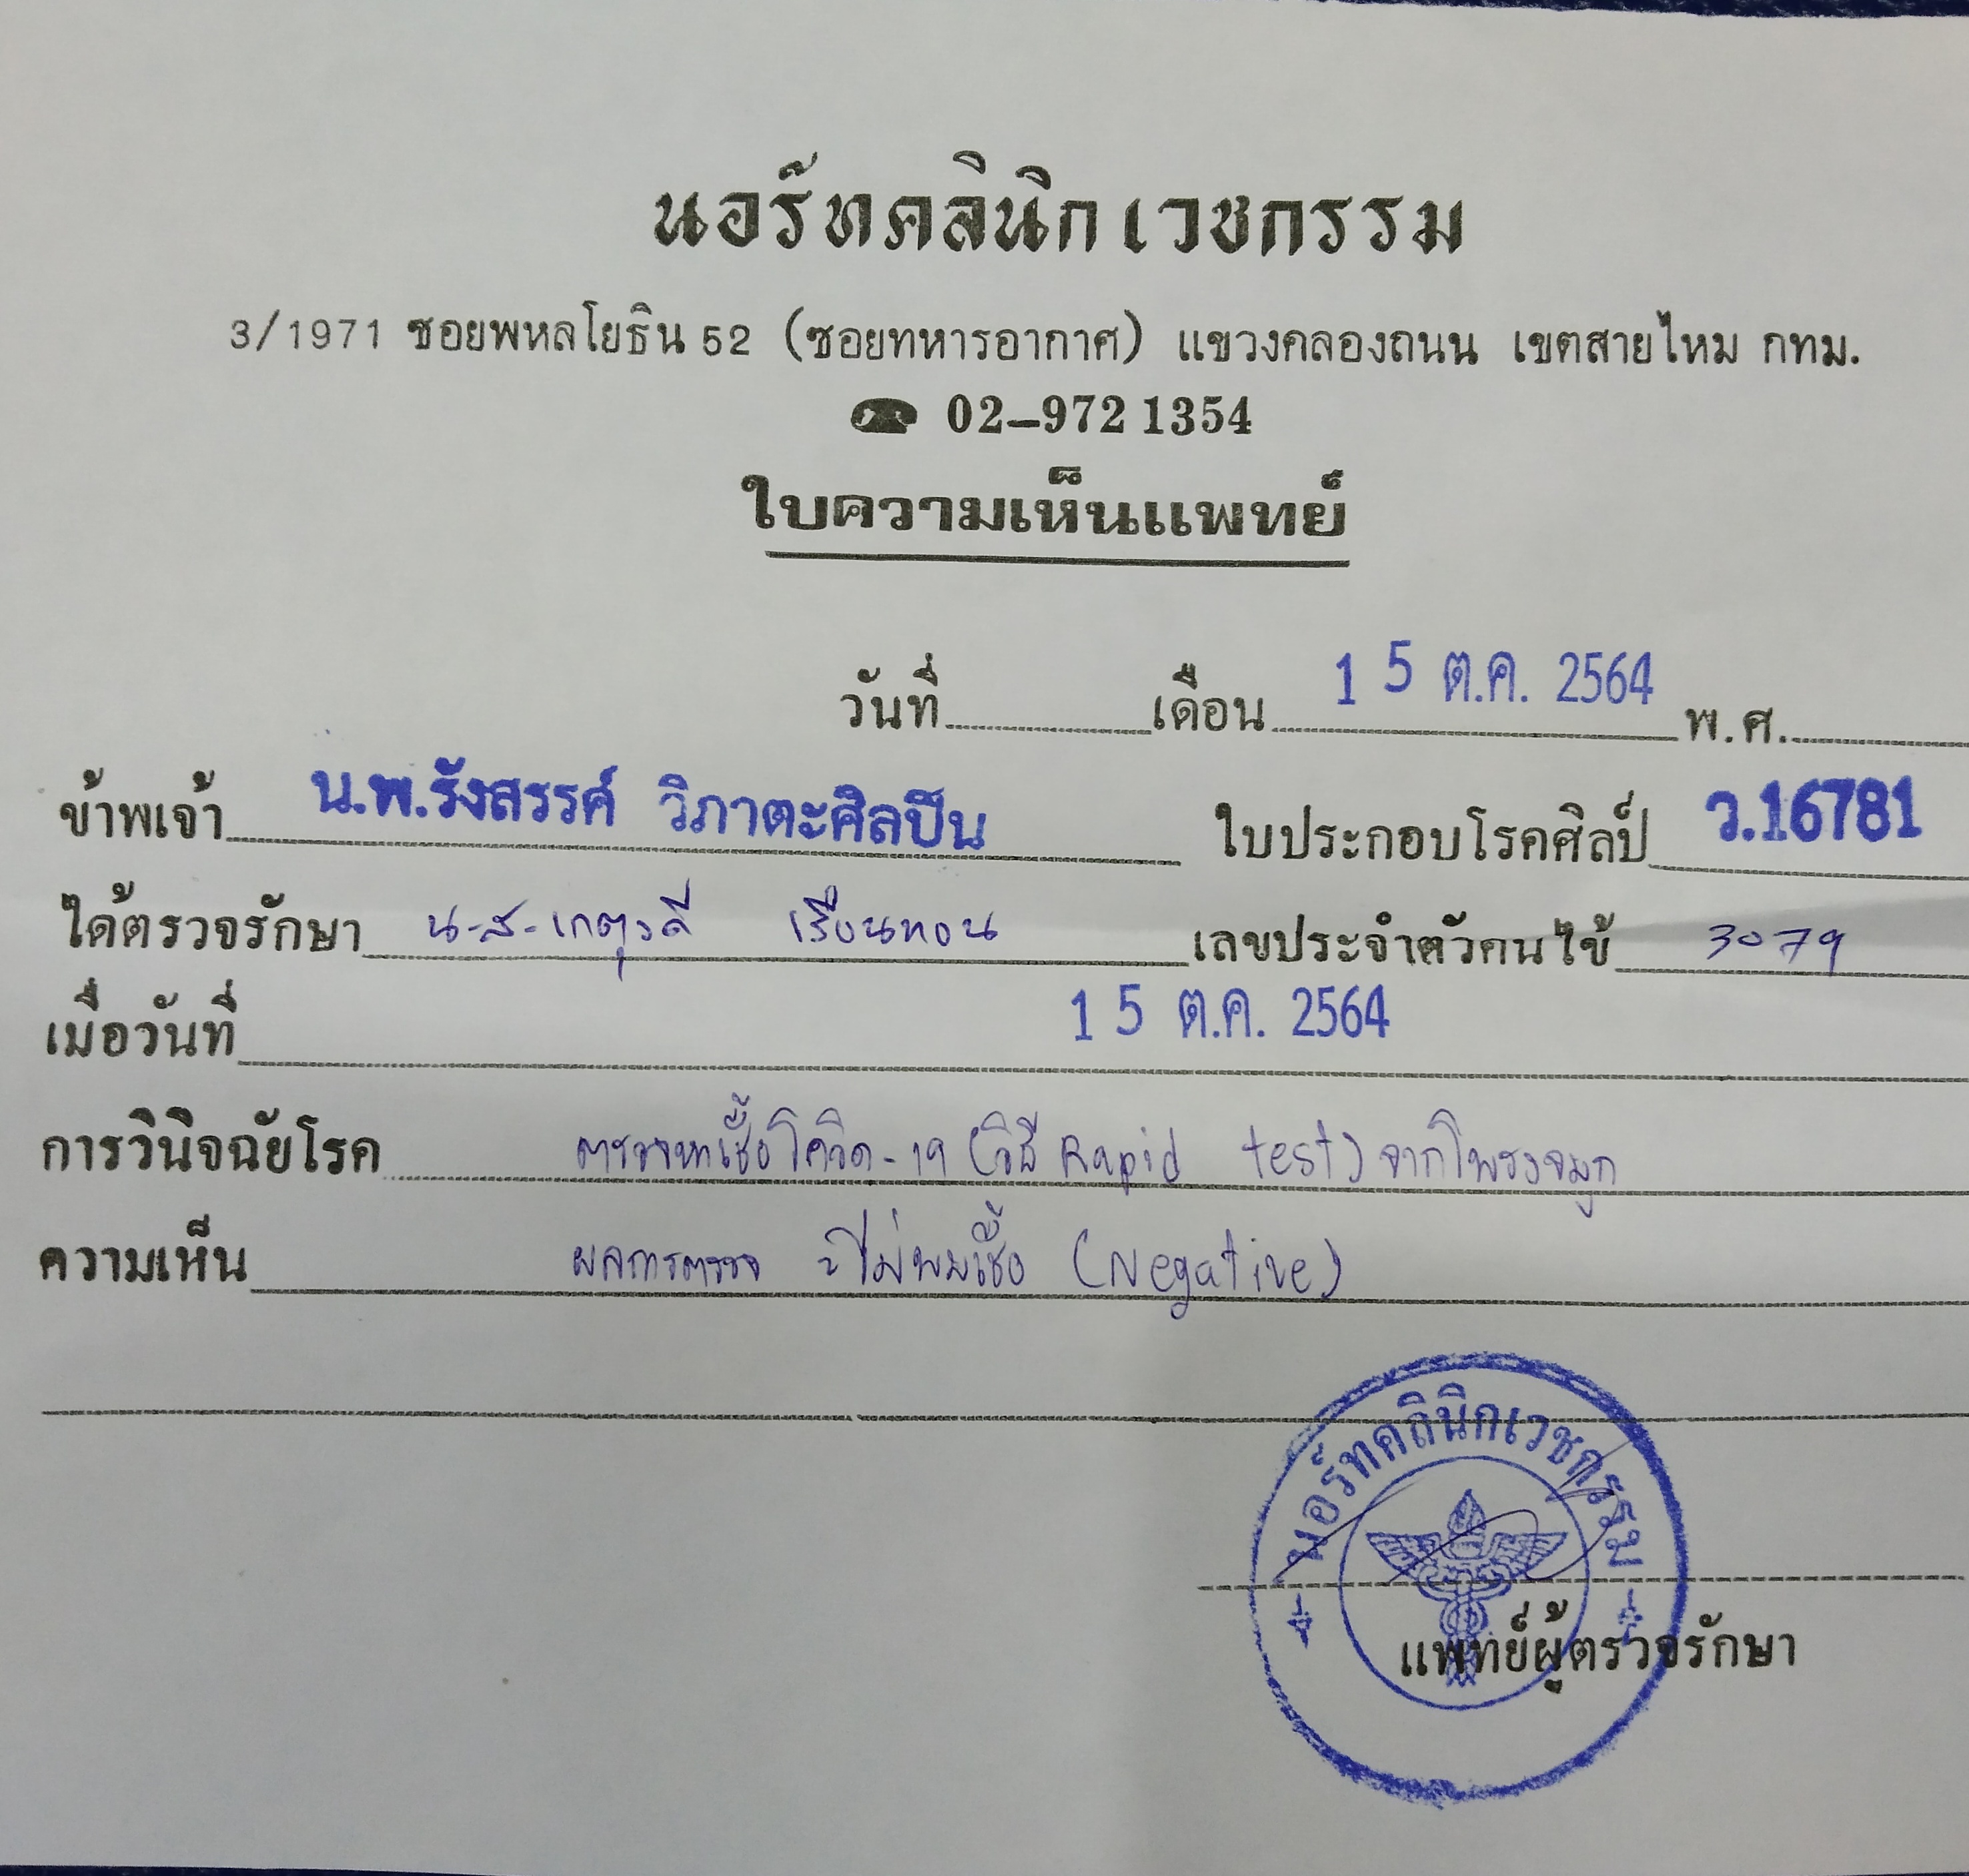 นอร์ทคลินิกเวชกรรม
3/1971 ซอยพหลโยธิน 52 (ซอยทหารอากาศ) แขวงคลองถนน เขตสายไหม กทม.
☎ 02-972 1354
ใบความเห็นแพทย์
วันที่ เดือน 15 ต.ค. 2564 พ.ศ.
ข้าพเจ้า น.พ.รังสรรค์ วิภาตะศิลปิน ใบประกอบโรคศิลป์ ว.16781
ได้ตรวจรักษา น.ส. เกตุวดี เรือนทอน เลขประจำตัวคนไข้ 3079
เมื่อวันที่ 15 ต.ค. 2564
การวินิจฉัยโรค ตรวจหาเชื้อโควิด-19 (วิธี Rapid test) จากโพรงจมูก
ความเห็น ผลการตรวจ = ไม่พบเชื้อ (Negative)
นอร์ทคลินิกเวชกรรม
แพทย์ผู้ตรวจรักษา